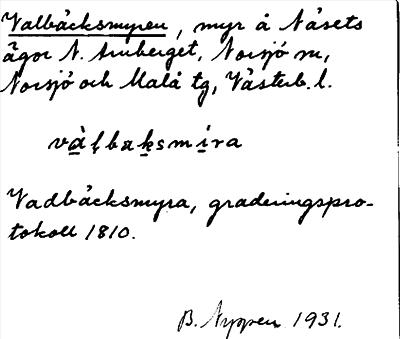 Valbäcksmyren, myr å Näsets
ägor N. Arnberget, Norsjö sn,
Norsjö och Malå tg, Västerb. l.
vàḷbaksmira
Vadbäcksmyra, graderingspro-
tokoll 1810.
B. Nyppen 1931.